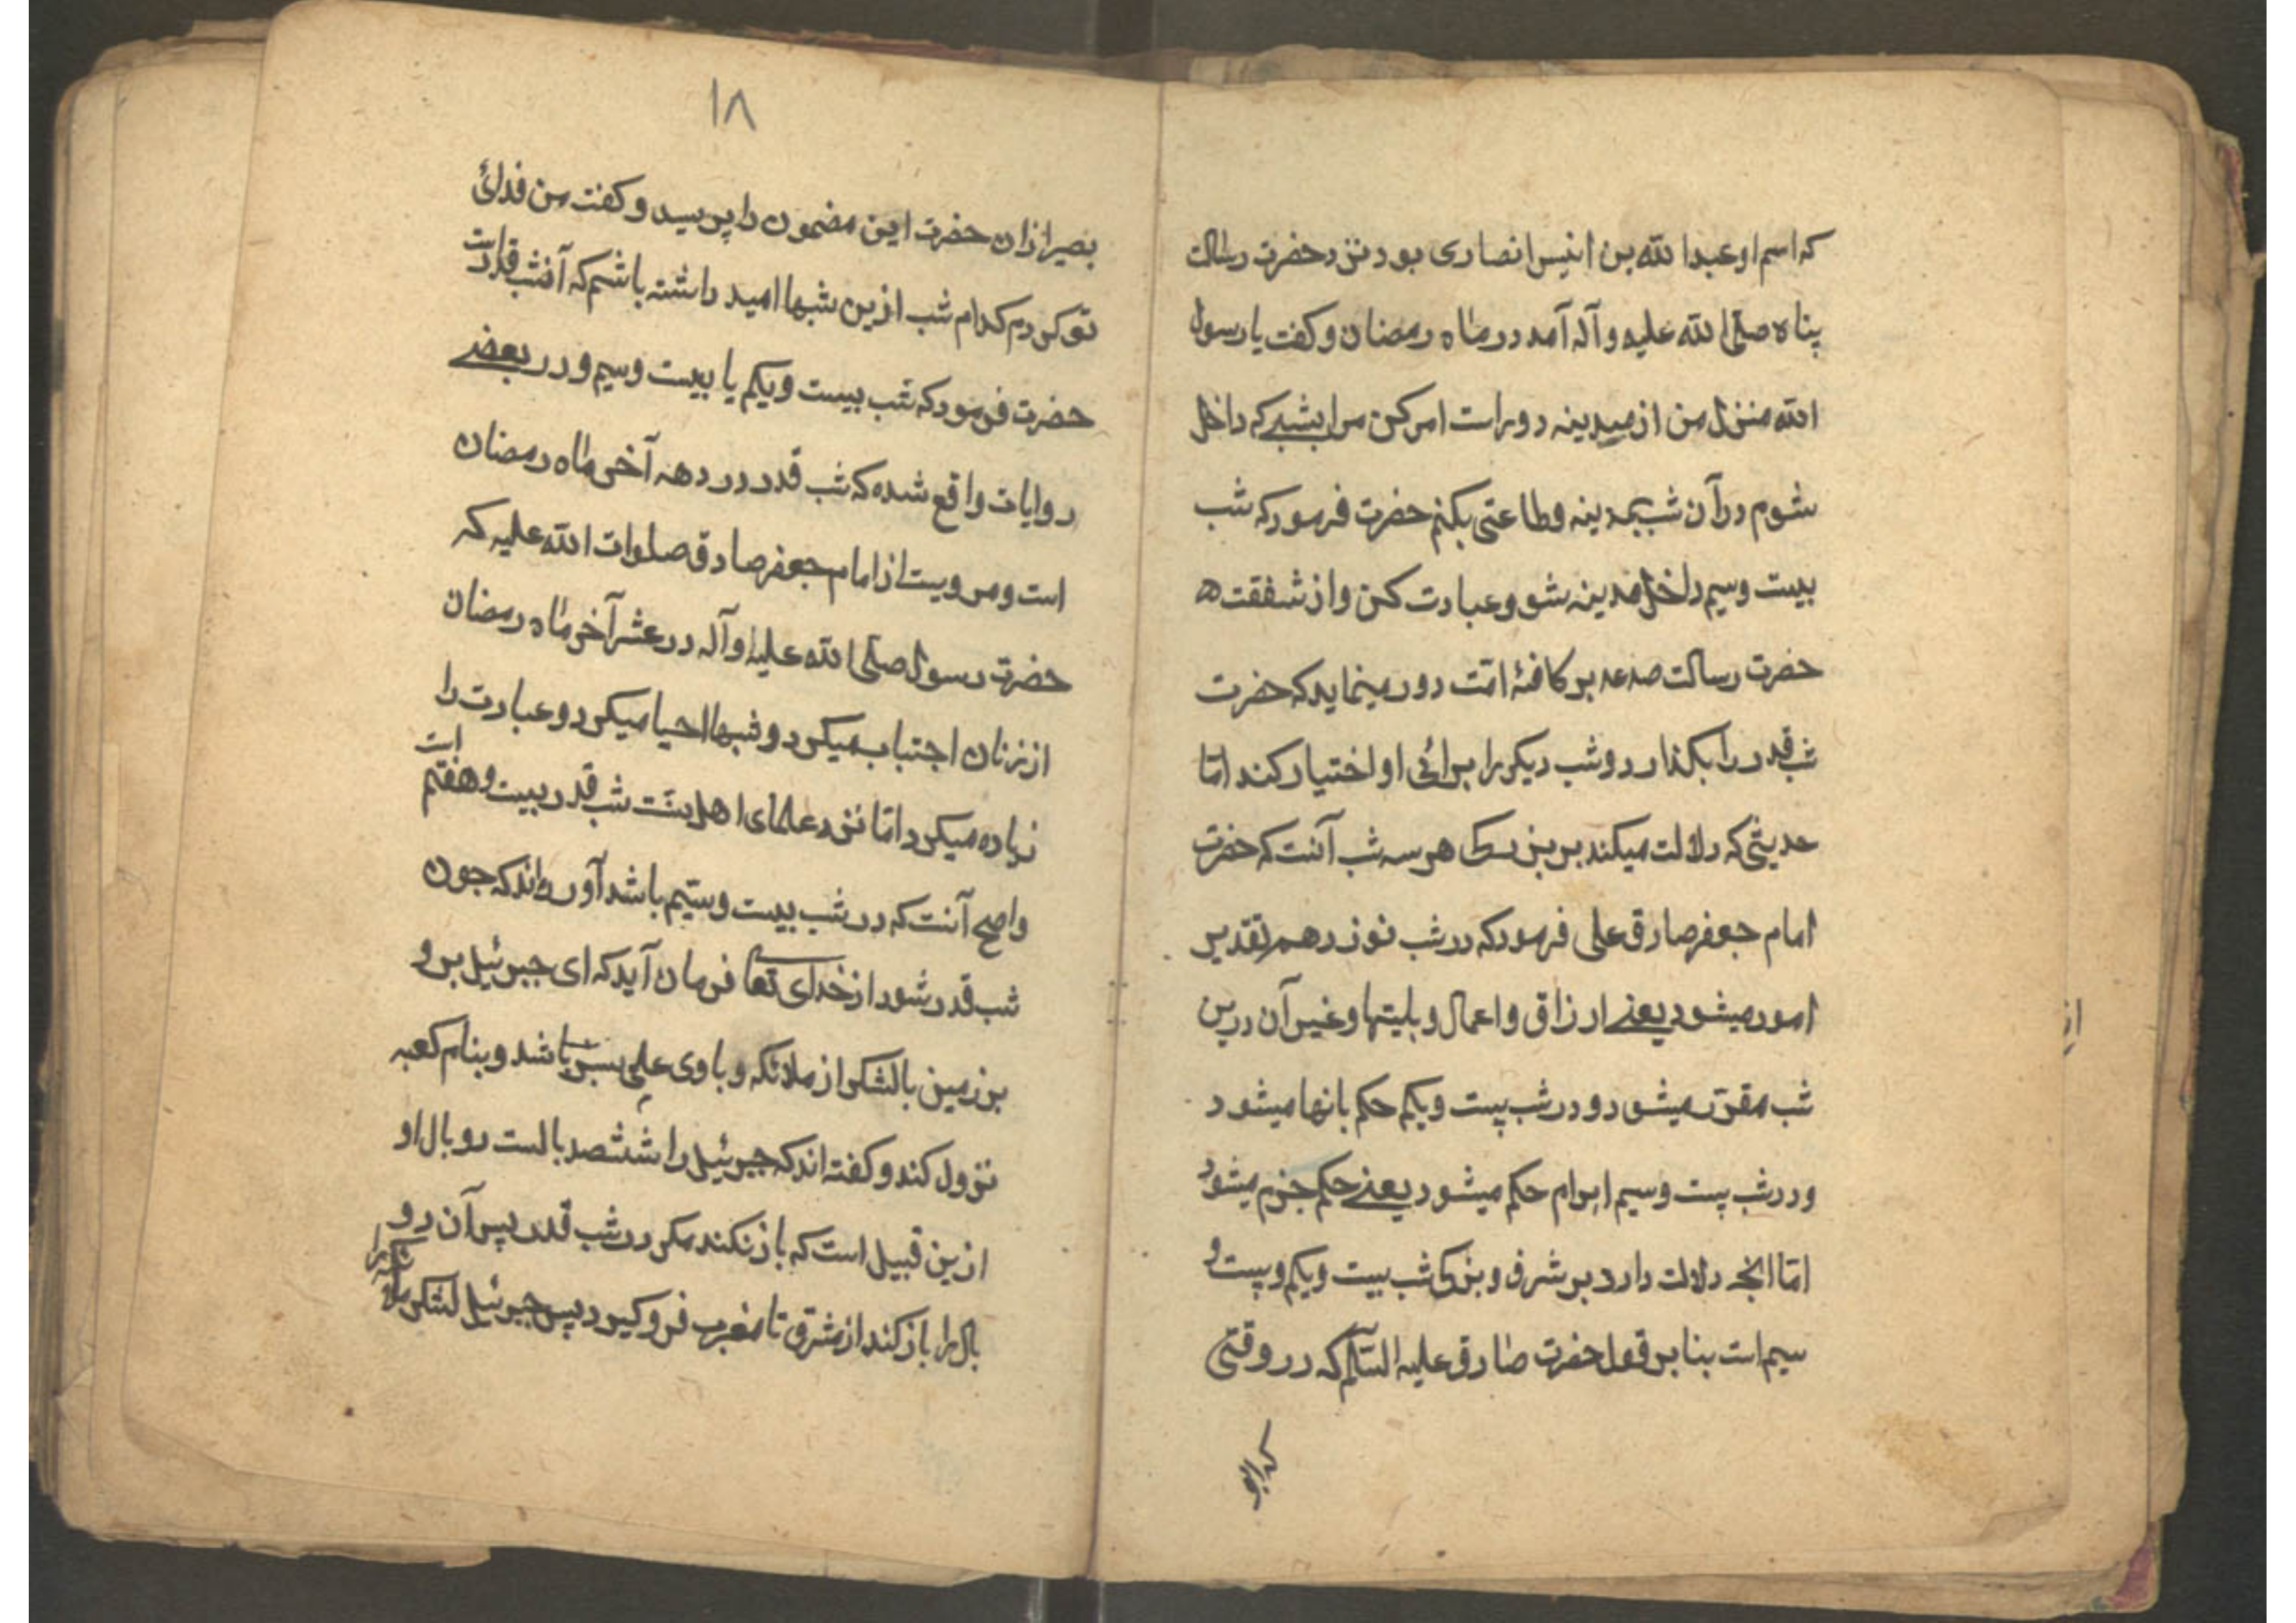 که اسم او عبدالله بن انیس انصاری بود نزد حضرت رسالت
پناه صلی الله علیه و آله آمد در ماه رمضان و کفت یا رسول
الله منزل من از مدینه دور است امر کن مرا بشبی که داخل
شوم در آن شب بمدینه و طاعتی بکنم حضرت فرمود که شب
بیست و سیم داخل مدینه شو و عبادت کن و از شفقت
حضرت رسالت صلعم بر کافهٔ امّت دور مینماید که حضرت
شب قدر را بکذارد و شب دیکر را برائی او اختیار کند امّا
حدیثی که دلالت میکند بر بزرکی هر سه شب آنست که حضرت
امام جعفر صادق علی فرمود که در شب نوزدهم تقدیر
امور میشود یعنے ارزاق و اعمال و بلیتها و غیر آن درین
شب مقرّر میشود و در شب بیست و یکم حکم بانها میشود
و در شب بیست و سیم ابرام حکم میشود یعنے حکم جزم میشود
امّا انچه دلالت دارد بر شرف و بزرکی شب بیست و یکم و بیست و
سیم است بنا بر قول حضرت صادق علیه السّلم که در وقتی
که ابو
۱۸
بصیر از ان حضرت این مضمون را پرسید و کفت من فدائ
تو کردم کدام شب ازین شبها امید داشته باشم که آنشب قدر است
حضرت فرمود که شب بیست و یکم یا بیست و سیم و در بعضے
روایات واقع شده که شب قدر در دهه آخر ماه رمضان
است و مرویست از امام جعفر صادق صلوات الله علیه که
حضرت رسول صلی الله علیه و آله در عشر آخر ماه رمضان
از زنان اجتباب میکرد و شبها احیا میکرد و عبادت را
زیاده میکرد امّا نزد علمای اهل سنّت شب قدر بیست و هفتم است
واصح آنست که در شب بیست و سیّم باشد آورده اند که جون
شب قدر شود از خدای تعا فرمان آید که ای جبرئیل برو
بر زمین با لشکر از ملائکه و با وی علمی سبز باشد و بنام کعبه
نزول کند و کفته اند که جبرئیل را ششصد بالست دو بال او
ازین قبیل است که باز نکند مکر در شب قدر پس آن دو
بال را باز کند از مشرق تا مغرب فرو کیرد پس جبرئیل لشکر ملائکه را